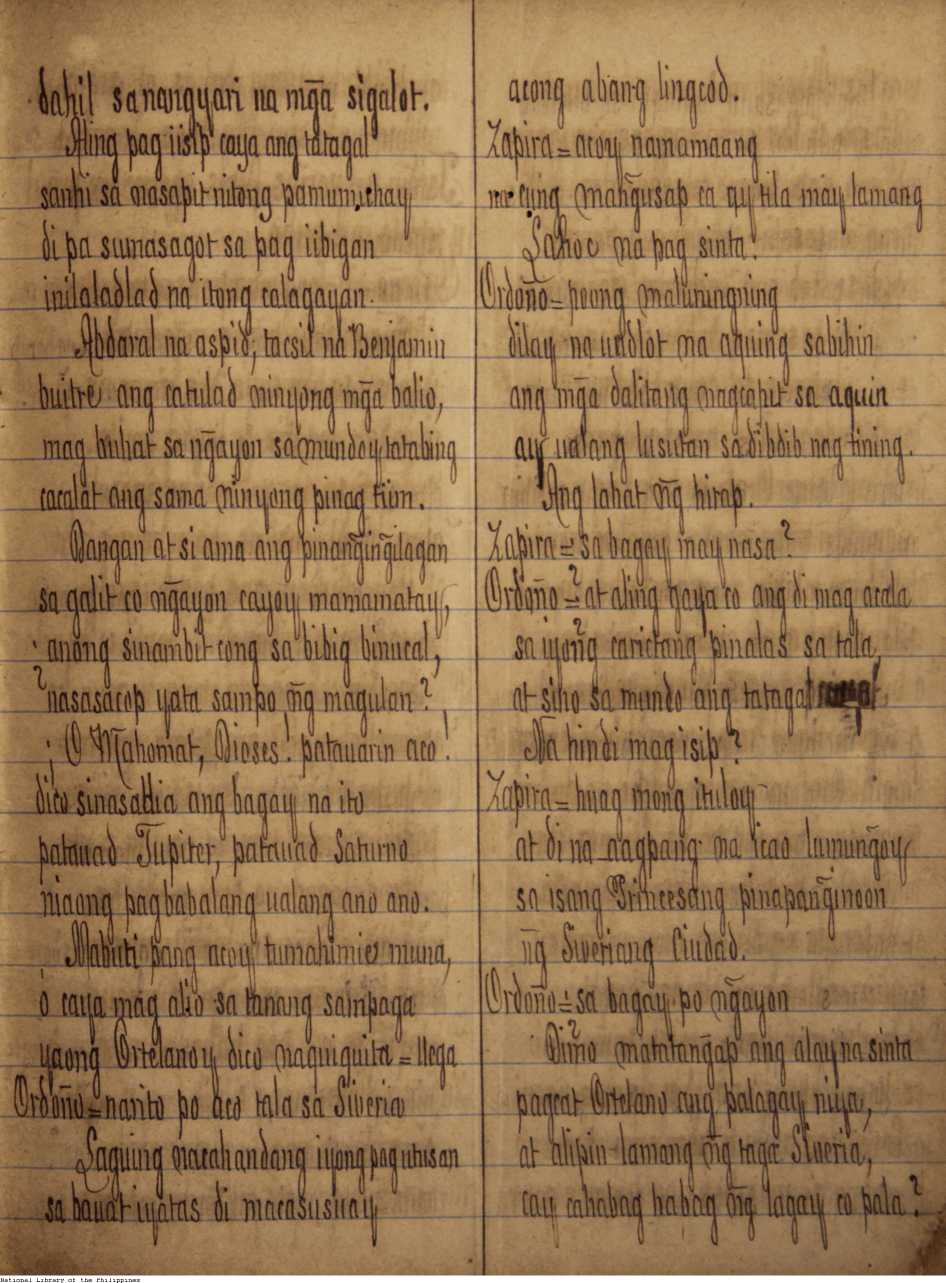 dahil sa nangyari na mg̃a sigalot.
Aling pag iisip caya ang tatagal
sanhi sa nasapit nitong pamumuhay
di pa sumasagot sa pag iibigan
inilaladlad na itong calagayan.
Abdaral na aspid, tacsil na Benjamin
buitre ang catulad ninyong mg̃a balio,
mag buhat sa ng̃ayon sa mundoy tatabing
cacalat ang sama ninyong pinag tiim.
Dangan at si ama ang pinang̃ing̃ilagan
sa galit co ng̃ayon cayoy mamamatay,
anong sinambit cong sa bibig binucal,
?nasasacop yata sampo ng̃ magulan?
¡O Mahomat, Dioses! patauarin aco!
dico sinasadia ang bagay na ito
patauad Jupiter, patauad Saturno
niaong pagbabalang ualang ano ano.
Mabuti pang acoy tumahimic muna,
ó caya mag alio sa tanang sampaga
yaong Ortelanoy dico naquiquita = llega
Ordoño = narito po aco tala sa Siveria
Laguing nacahandang iyong pag utusan
sa bauat iyatas di macasusuay
acong abang lingcod.
Zapira = acoy namamaang
na cung mang̃usap ca ay tila may lamang
Lahoc na pag sinta.
Ordoño = poong maluningning
dilay na undlot na aquing sabihin
ang mg̃a dalitang nagcapit sa aquin
ay ualang lusutan sa dibdib nag tining.
Ang lahat ng̃ hirap.
Zapira = sa bagay may nasa?
Ordoño = ?at aling gaya co ang di mag acala
sa iyong̃ carictang pinalas sa tala,
at sino sa mundo ang tatagal
Na hindi mag isip?
Zapira = huag mong ituloy
at di na aagpang na icao lumung̃oy
sa isang Princesang pinapang̃inoon
ng̃ Siveriang Ciudad.
Ordoño = sa bagay po ng̃ayon
Dimo matatang̃ap ang alay na sinta
pagcat Ortelano ang palagay niya,
at alipin lamang ng̃ taga Siveria,
cay cahabag habag ng̃ lagay co pala?
National Library of the Philippines